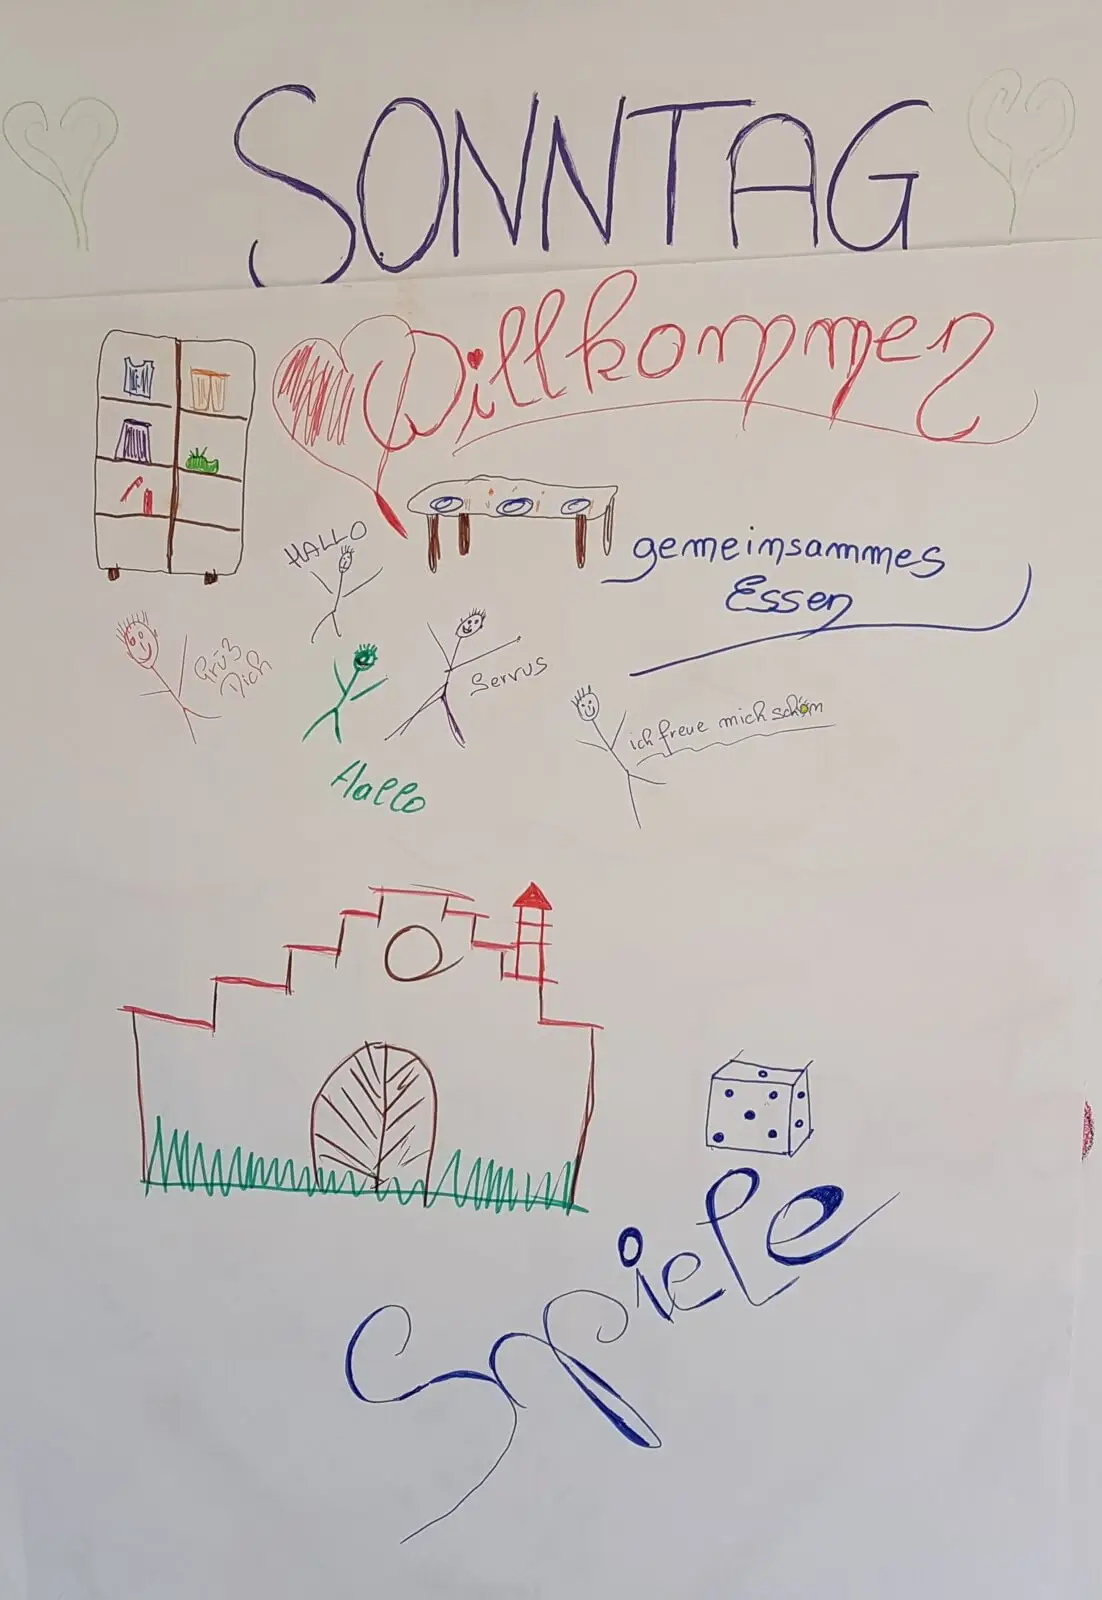 SONNTAG
Willkommen
HALLO
gemeinsammes
Essen
Grüß
Dich
Servus
ich freue mich schon
Hallo
Spiele